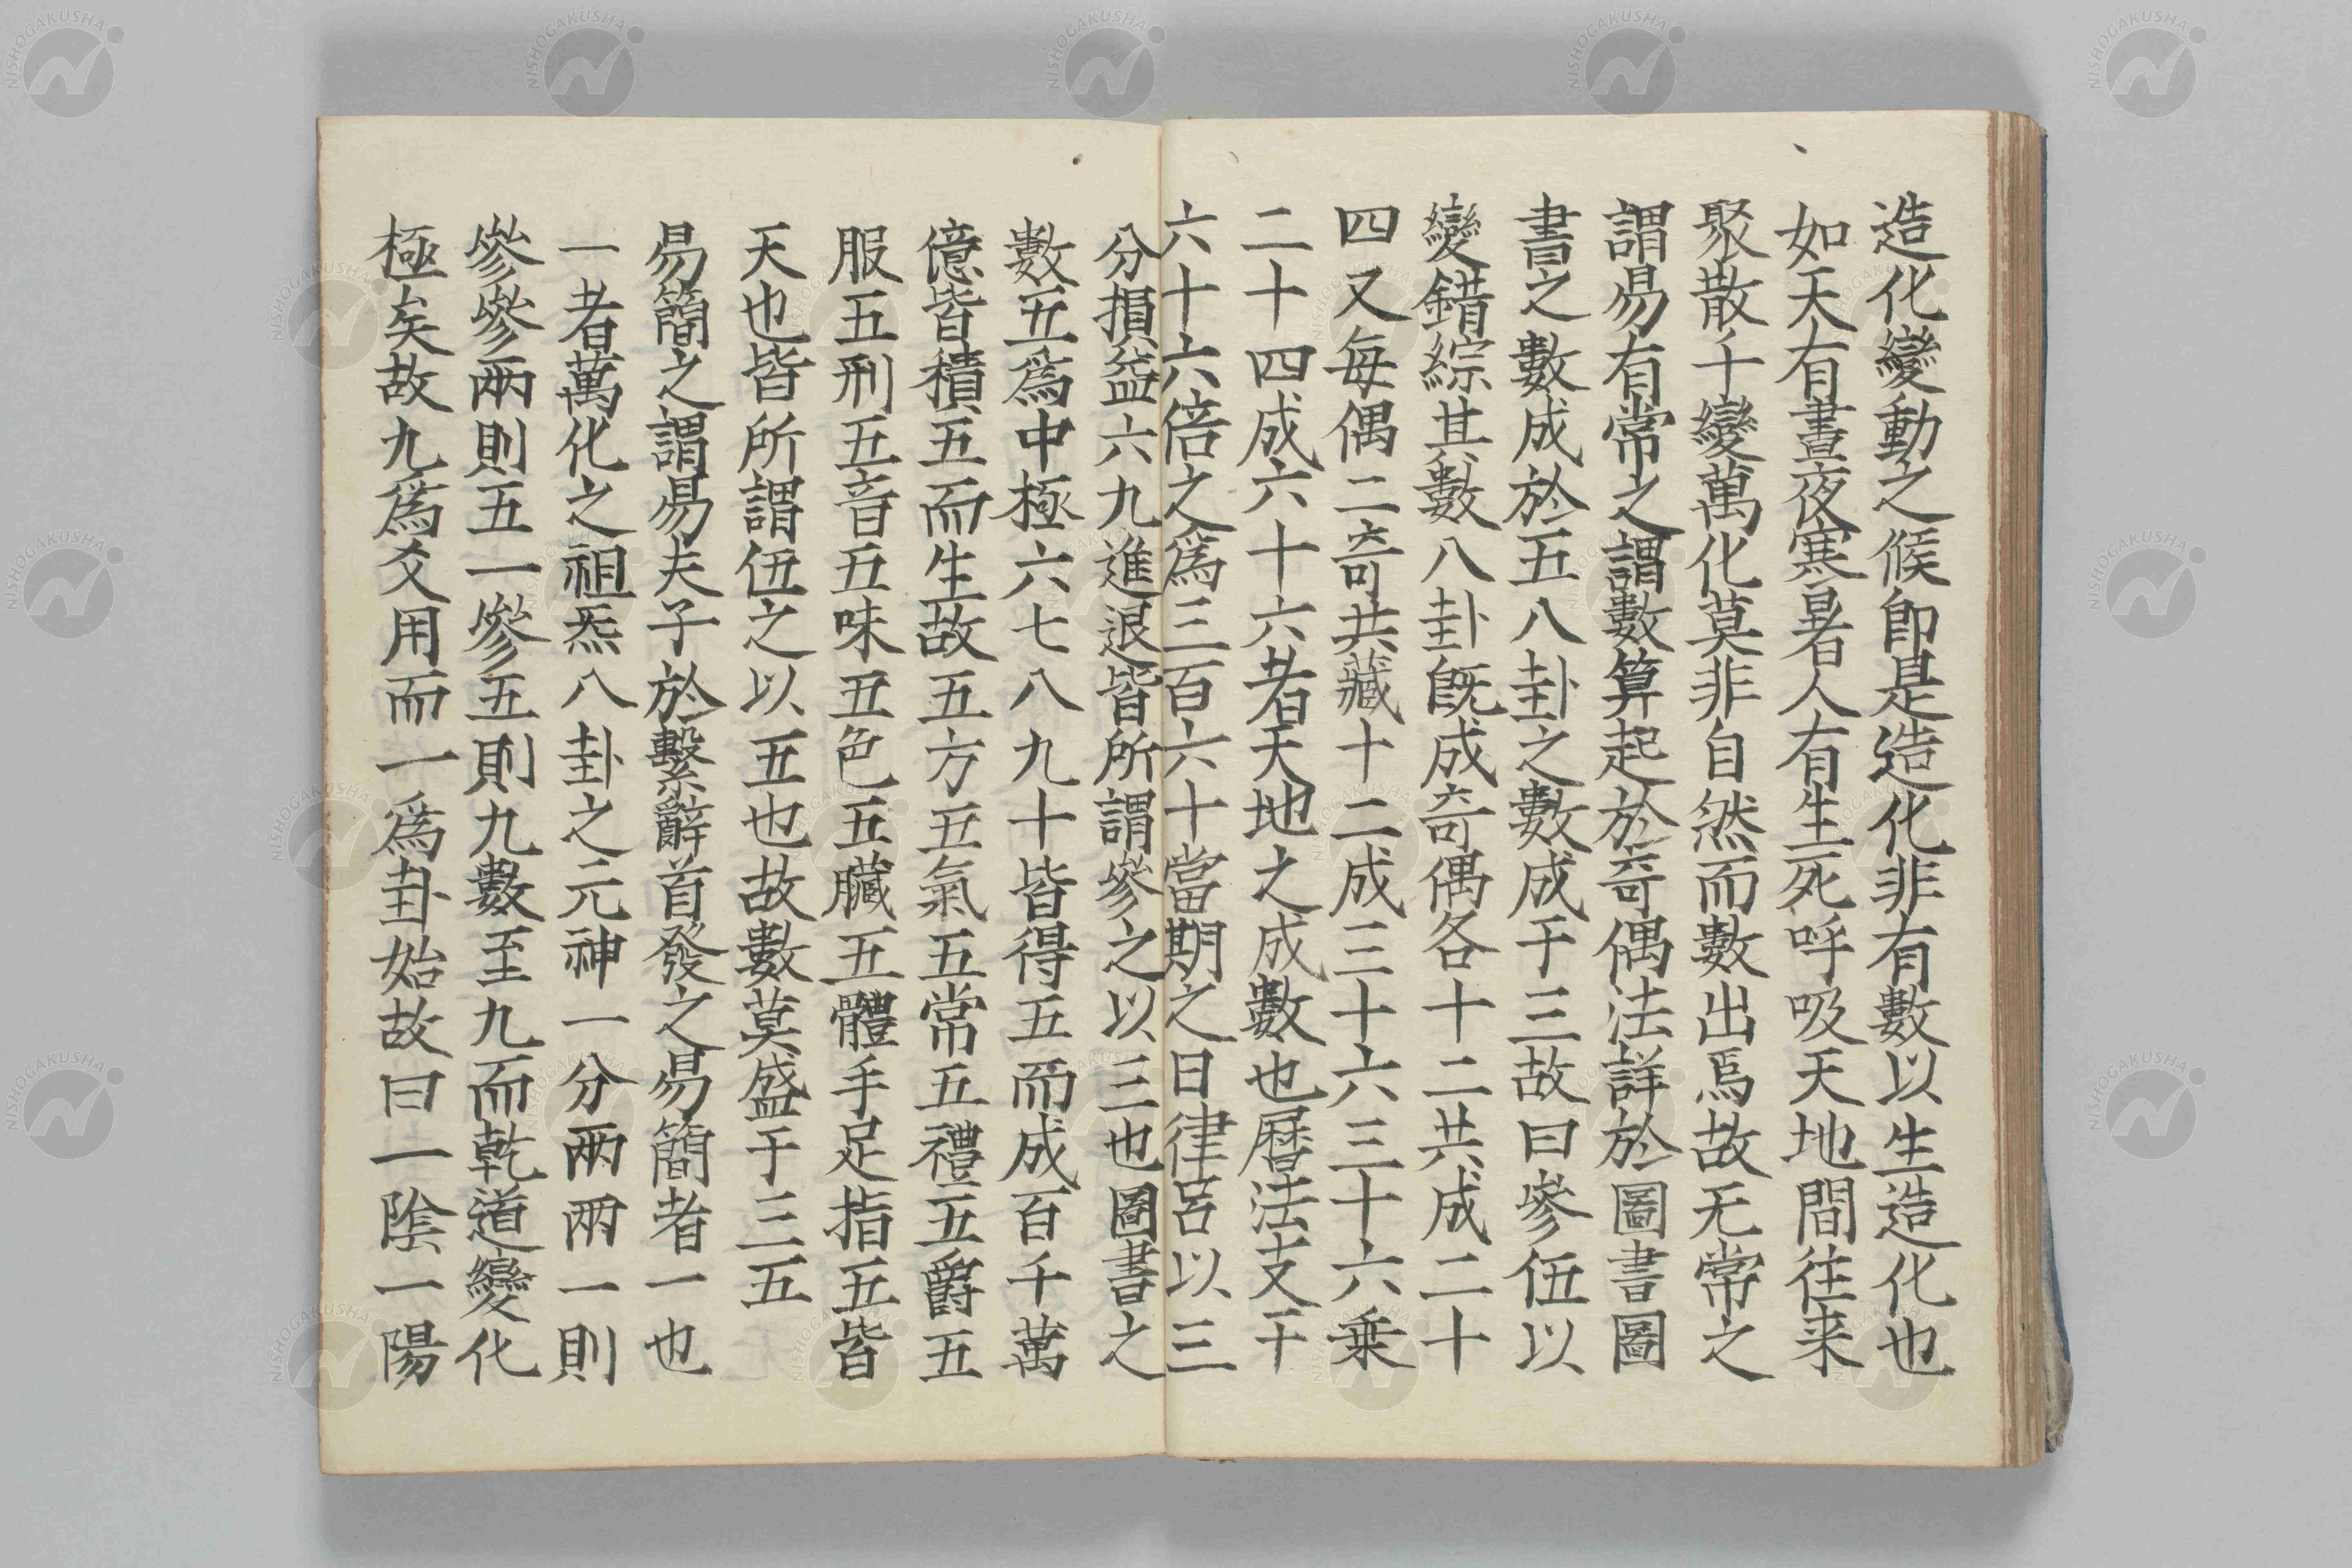 造化變動之候即是造化非有數以生造化也
如天有晝夜寒暑人有生死呼吸天地間往来
聚散千變萬化莫非自然而數出焉故无常之
謂易有常之謂數算起於奇偶法詳於圖書圖
書之數成於五八卦之數成于三故曰參伍以
變錯綜其數八卦既成奇偶各十二共成二十
四又每偶二奇共藏十二成三十六三十六乗
二十四成六十六者天地之成數也暦法支干
六十六倍之爲三百六十當期之日律呂以三
分損益六九進退皆所謂參之以三也圖書之
數五爲中極六七八九十皆得五而成百千萬
億皆積五而生故五方五氣五常五禮五爵五
服五刑五音五味五色五臟五體手足指五皆
天也皆所謂伍之以五也故數莫盛于三五
易簡之謂易夫子於繫辭首發之易簡者一也
一者萬化之祖炁八卦之元神一分兩兩一則
參參兩則五一參五則九數至九而乾道變化
極矣故九爲爻用而一爲卦始故曰一陰一陽
NISHOGAKUSHA